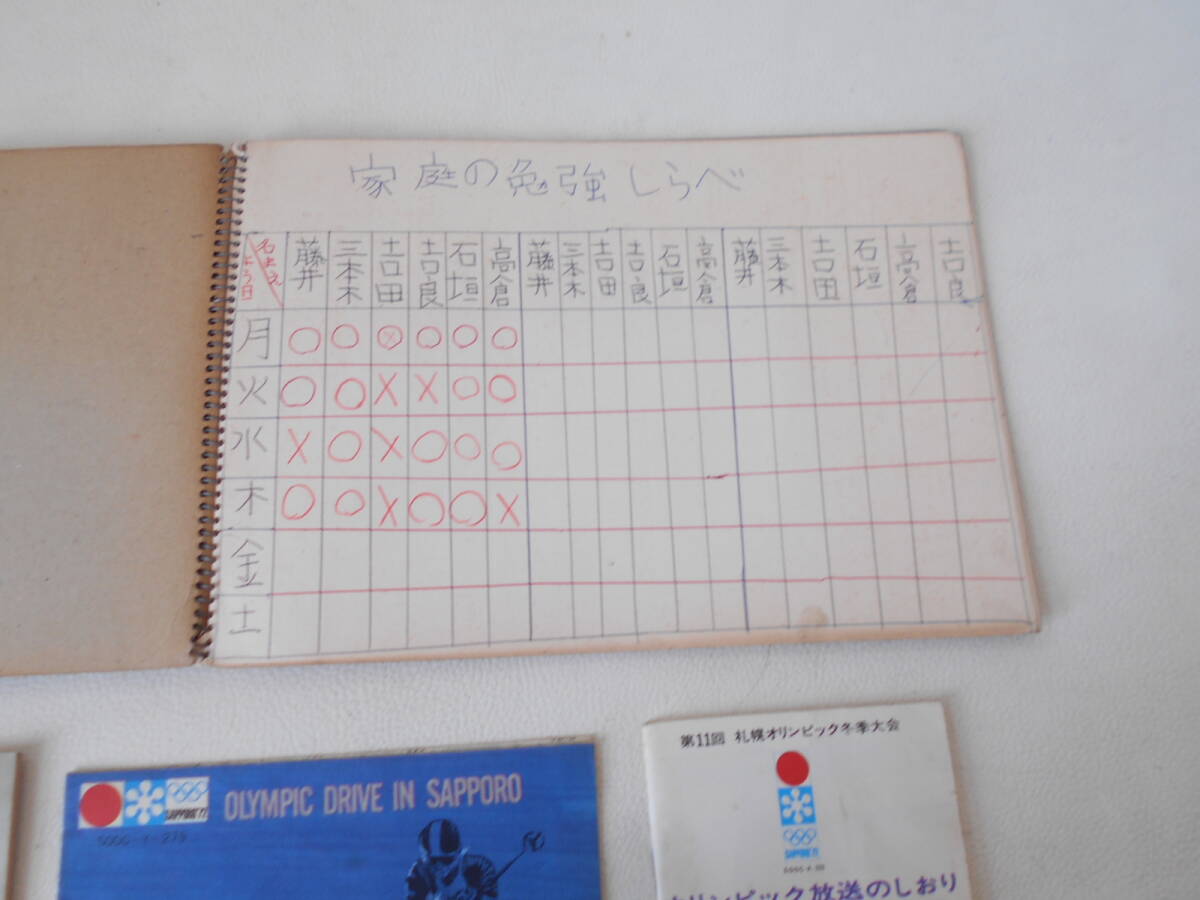 家庭の勉強しらべ
名まえ 藤井 三本木 吉田 吉良 石垣 高倉 藤井 三本木 吉田 吉良 石垣 高倉 藤井 三本木 吉田 石垣 高倉 吉良
よう日
月 ○ ○ ⊗ ○ ○ ○
火 ○ ○ × × ○ ○
水 × ○ × ○ ○ ○
木 ○ ○ × ○ ○ ×
金
土
OLYMPIC DRIVE IN SAPPORO
SAPPORO'72
第11回 札幌オリンピック冬季大会
SAPPORO'72
オリンピック放送のしおり